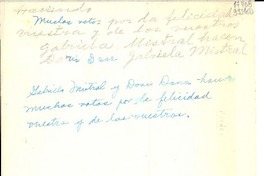 haciendo
Muchos votos por la felicidad
nuestra y de los nuestros
Gabriela Mistral hacen
Doris Dana Gabriela Mistral
Gabriela Mistral y Doris Dana hacen
muchos votos por la felicidad
vuestra y de los vuestros.